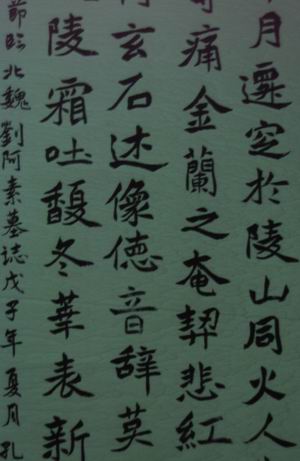 月遷窆於陵山同火人
痛金蘭之奄契悲紅
玄石述像德音辭莫
陵霜吐馥冬華表新
節臨北魏劉阿素墓誌戊子年夏月孔